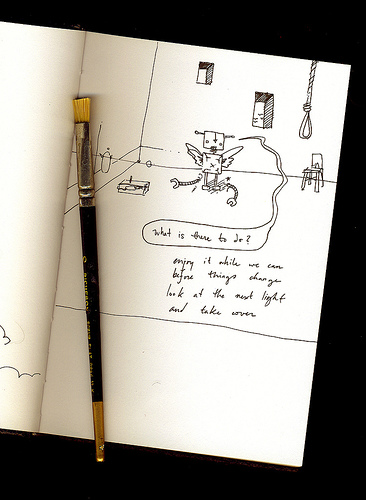 what is there to do?
enjoy it while we can
before things change
look at the next light
and take cover